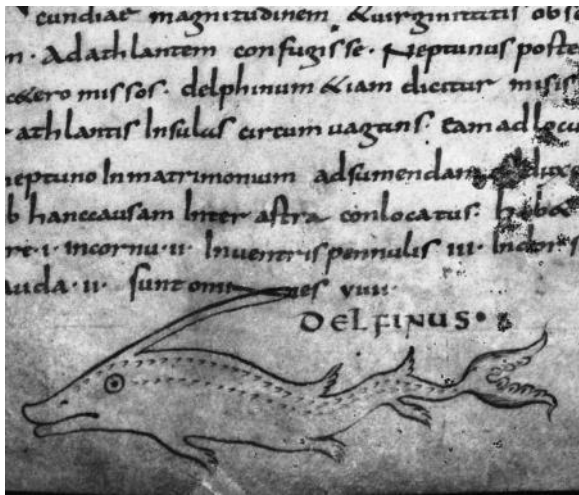 cundiae magnitudinem &uirginitatis obs
n. Adathlantem confugisse. Neptunus poste
c&ero missos. delphinum &iam dicitur misis
athlantis Insulas circum uagans. Eam ad locu
neptuno Inmatrimonium adsumendam duxe
b hanccausam Inter astra conlocatus. hab&
re. i. incornu. ii. Inuentris pennulis iii. Indors
auda. ii. sunt omnes viiii.
DELFINUS.